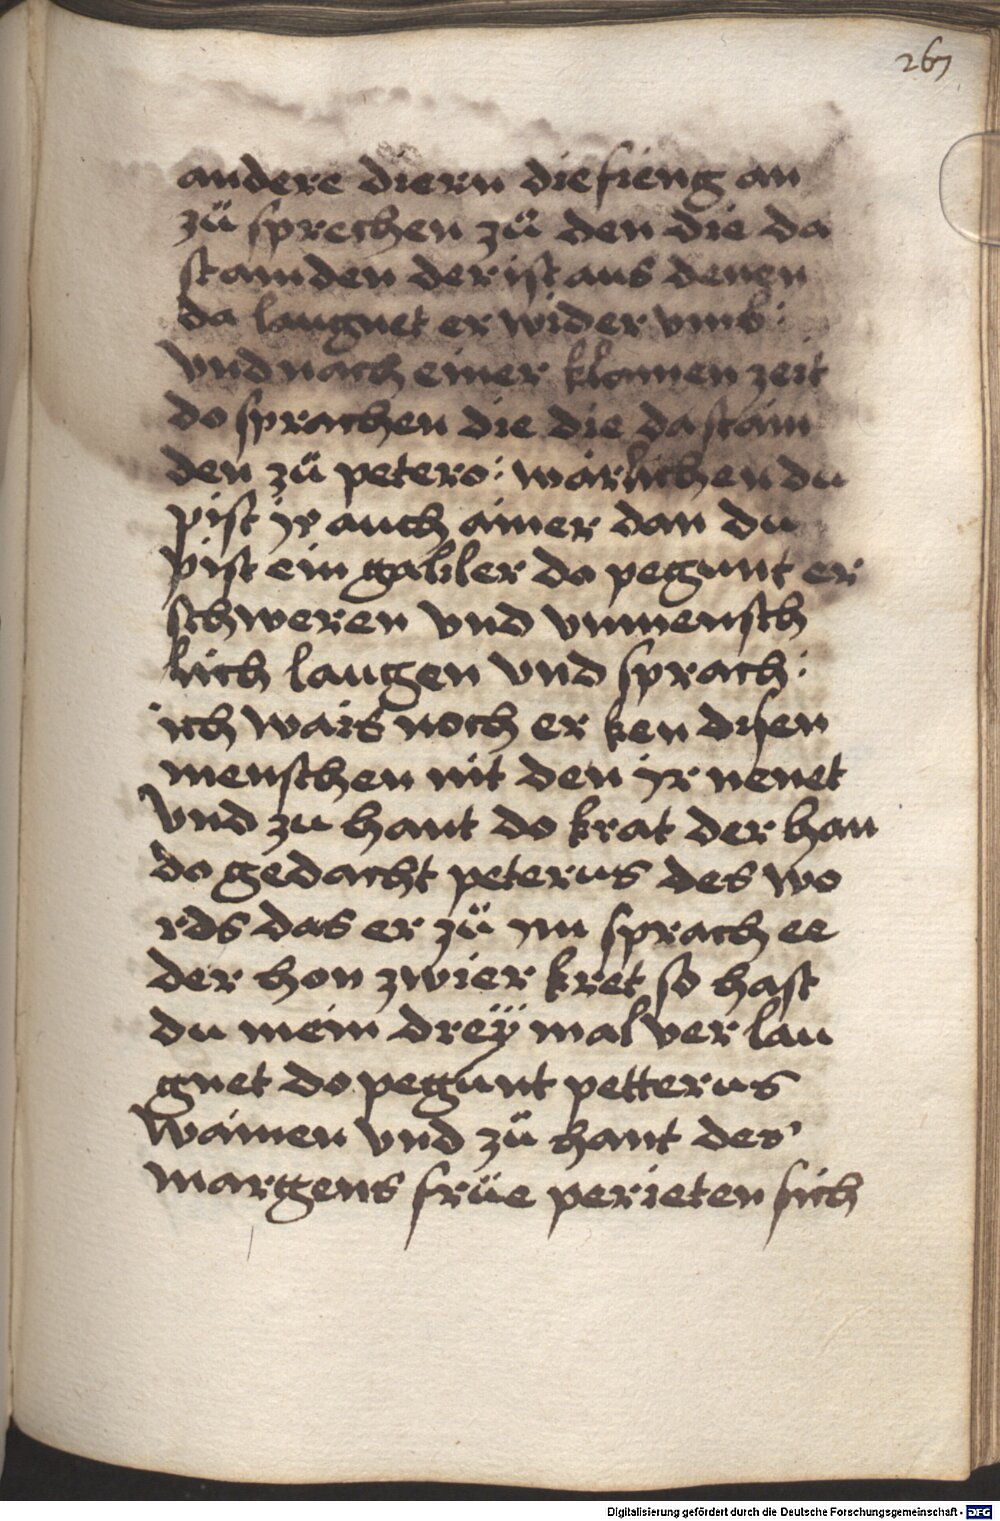 267
andere diern die fieng an
zü sprechen zü den die da
stamden der ist aus denen
da laugnet er wider vmb :
vnd nach einer klainen zeit
do sprachen die die da stam
den zü peters : warlichen du
pist jr auch ainer dan du
pist ein galiler do pegunt er
schweren vnd vnmensch
lich laugen vnd sprach :
ich wais noch er ken disen
menschen nit den jr nenet
vnd zu hant do krat der han
do gedacht peterus des wo
rds das er zü jm sprach ee
der hon zwier kret so hast
du mein dreÿ mal ver lau
gnet do pegunt petterus
wainen vnd zü hant des
margens früe perieten sich
Digitalisierung gefördert durch die Deutsche Forschungsgemeinschaft - DFG